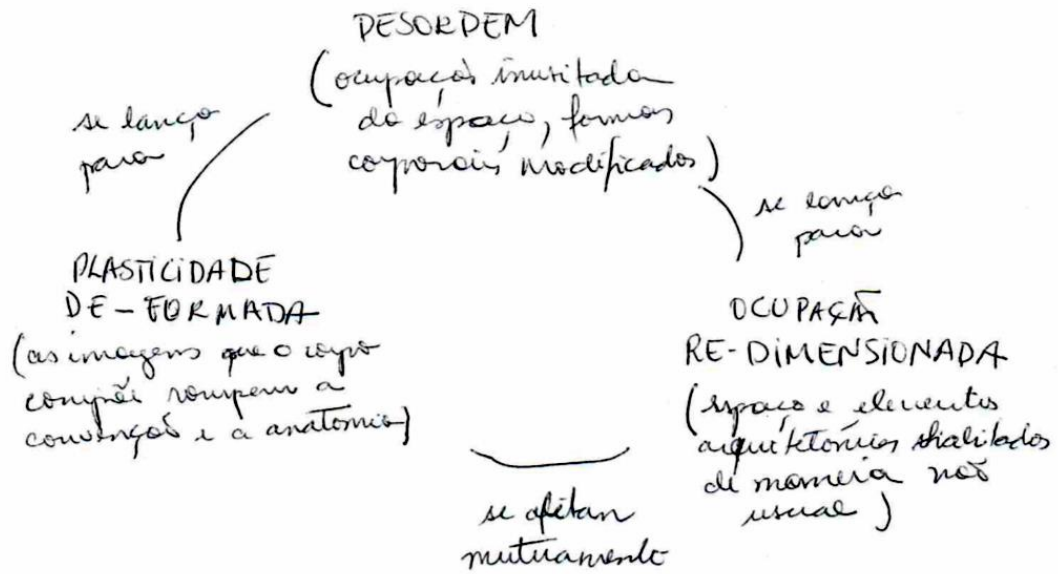 DESORDEM
(ocupação inusitada
do espaço, formas
corporais modificadas)
se lança
para
se lança
para
PLASTICIDADE
DE-FORMADA
(as imagens que o corpo
compõe rompem a
convenção e a anatomia)
OCUPAÇÃO
RE-DIMENSIONADA
(espaço e elementos
arquitetônicos habitados
de maneira não
usual)
se afetam
mutuamente